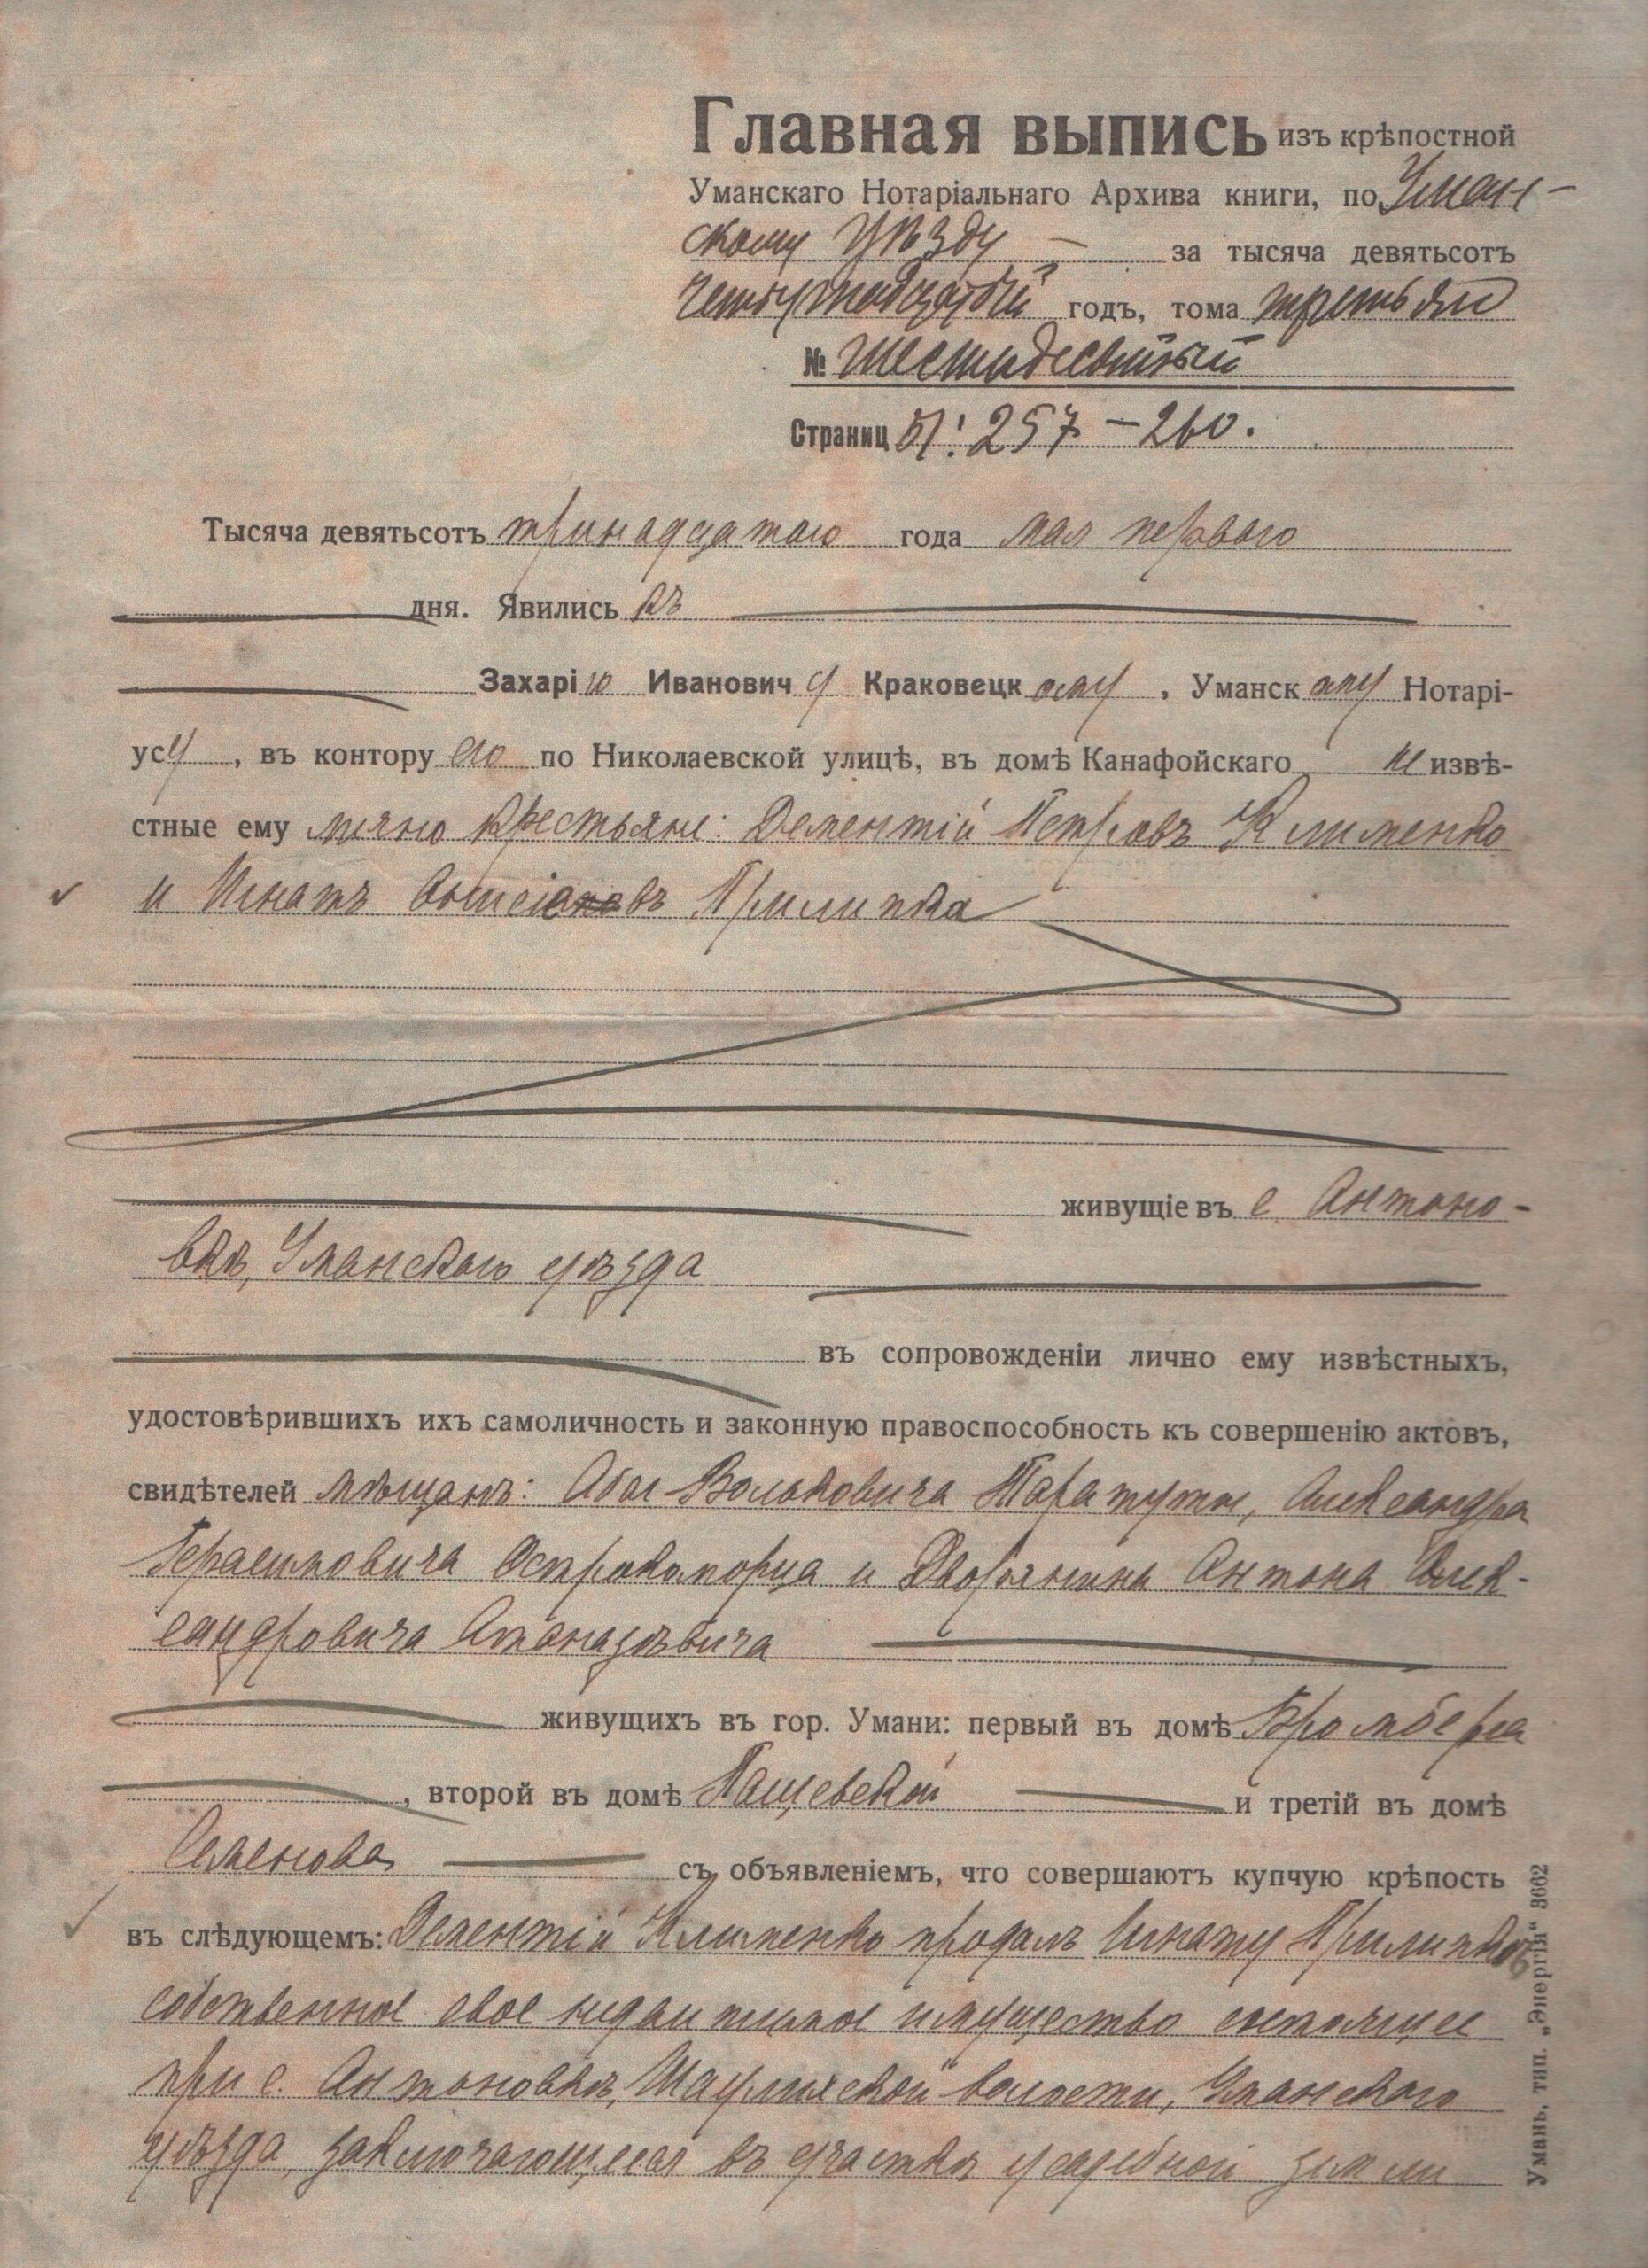 Главная выпись изъ крѣпостной
Уманскаго Нотаріальнаго Архива книги, по Уман-
скому уѣзду — за тысяча девятьсотъ
четырнадцатый годъ, тома третьяго
№ шестидесятый
Страниц 257-260.
Тысяча девятьсотъ тринадцатаго года мая перваго
дня. Явились къ
Захарію Ивановичу Краковецкому, Уманскому Нотарі-
усу, въ контору его по Николаевской улицѣ, въ домѣ Канафойскаго не извѣ-
стные ему лично крестьяне: Дементій Петровъ Клименко
и Игнатъ Прилипка
живущіе въ с. Антоно-
вкѣ, Уманскаго уѣзда
въ сопровожденіи лично ему извѣстныхъ,
удостовѣрившихъ ихъ самоличность и законную правоспособность къ совершенію актовъ,
свидѣтелей мѣщанъ: Абы Вольковича Таратуты, Александра
Герасимовича и Дворянина Антона Алек-
сандровича
живущихъ въ гор. Умани: первый въ домѣ Бромберга
, второй въ домѣ Пащевской и третій въ домѣ
Семенова съ объявленіемъ, что совершаютъ купчую крѣпость
въ слѣдующемъ: Дементій Клименко продалъ Игнату Прилипкѣ
собственное свое недвижимое имущество состоящее
при с. Антоновкѣ, волости, Уманскаго
уѣзда, заключающееся въ участкѣ усадебной земли
Умань, тип. „Энергія" 3662